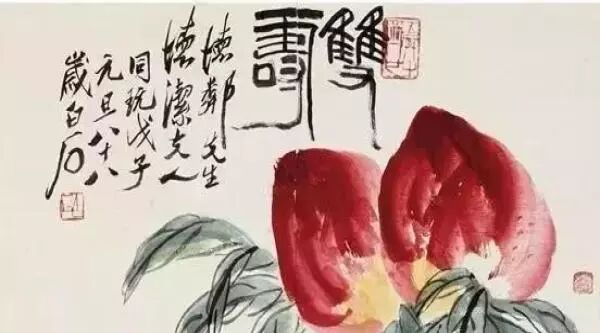 雙壽
懷鄰先生
懷潔夫人
同玩戊子
元旦八十八
歲白石